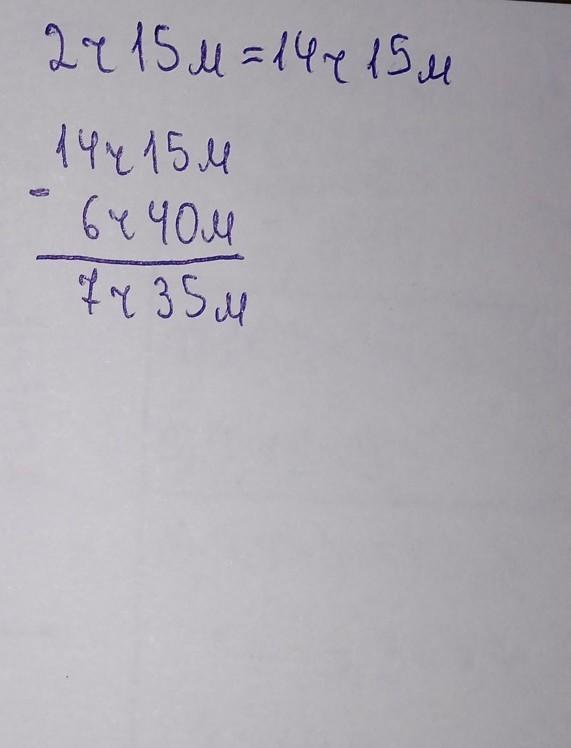 2ч 15м = 14ч 15м
14ч 15м
-
6ч 40м
7ч 35м